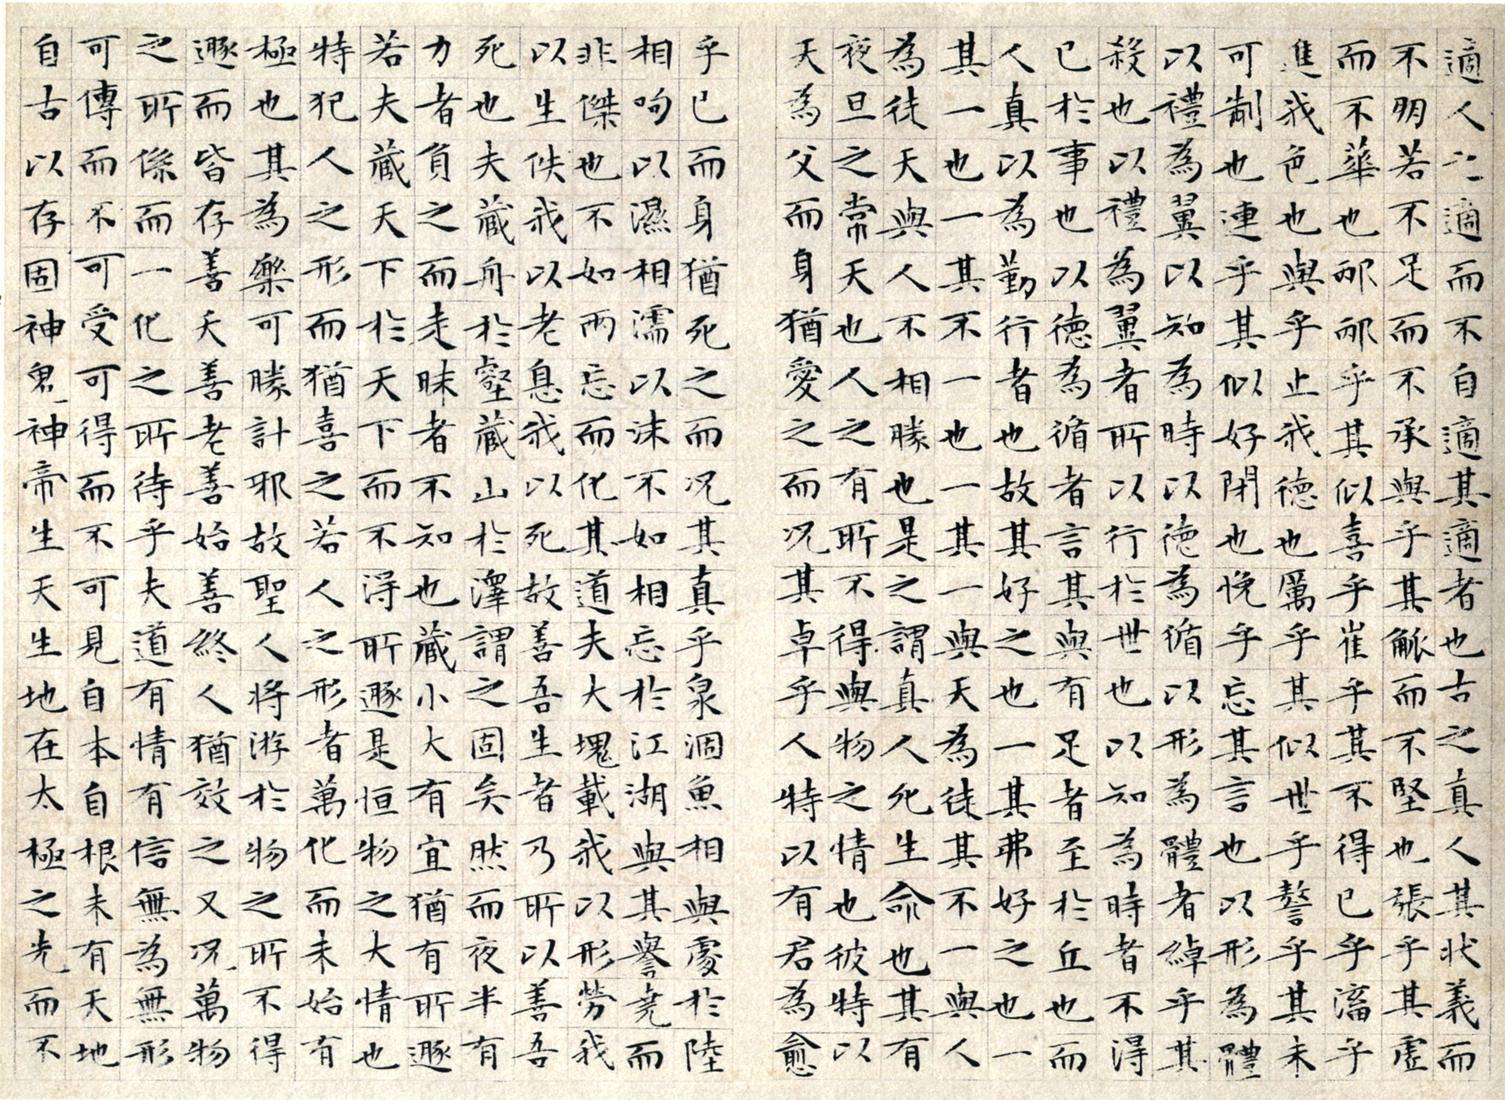 適人之適而不自適其適者也古之真人其狀義而
不朋若不足而不承與乎其觚而不堅也張乎其虛
而不華也邴邴乎其似喜乎崔乎其不得已乎滀乎
進我色也與乎止我德也厲乎其似世乎謷乎其未
可制也連乎其似好閉也悗乎忘其言也以形為體
以禮為翼以知為時以德為循以形為體者綽乎其
殺也以禮為翼者所以行於世也以知為時者不得
已於事也以德為循者言其與有足者至於丘也而
人真以為勤行者也故其好之也一其弗好之也一
其一也一其不一也一其一與天為徒其不一與人
為徒天與人不相勝也是之謂真人死生命也其有
夜旦之常天也人之有所不得與物之情也彼特以
天為父而身猶愛之而況其卓乎人特以有君為愈
乎已而身猶死之而況其真乎泉涸魚相與處於陸
相呴以濕相濡以沫不如相忘於江湖與其譽堯而
非傑也不如兩忘而化其道夫大塊載我以形勞我
以生佚我以老息我以死故善吾生者乃所以善吾
死也夫藏舟於壑藏山於澤謂之固矣然而夜半有
力者負之而走昧者不知也藏小大有宜猶有所遯
若夫藏天下於天下而不得所遯是恒物之大情也
特犯人之形而猶喜之若人之形者萬化而未始有
極也其為樂可勝計邪故聖人將游於物之所不得
遯而皆存善夭善老善始善終人猶效之又況萬物
之所係而一化之所待乎夫道有情有信無為無形
可傳而不可受可得而不可見自本自根未有天地
自古以存固神鬼神帝生天生地在太極之先而不